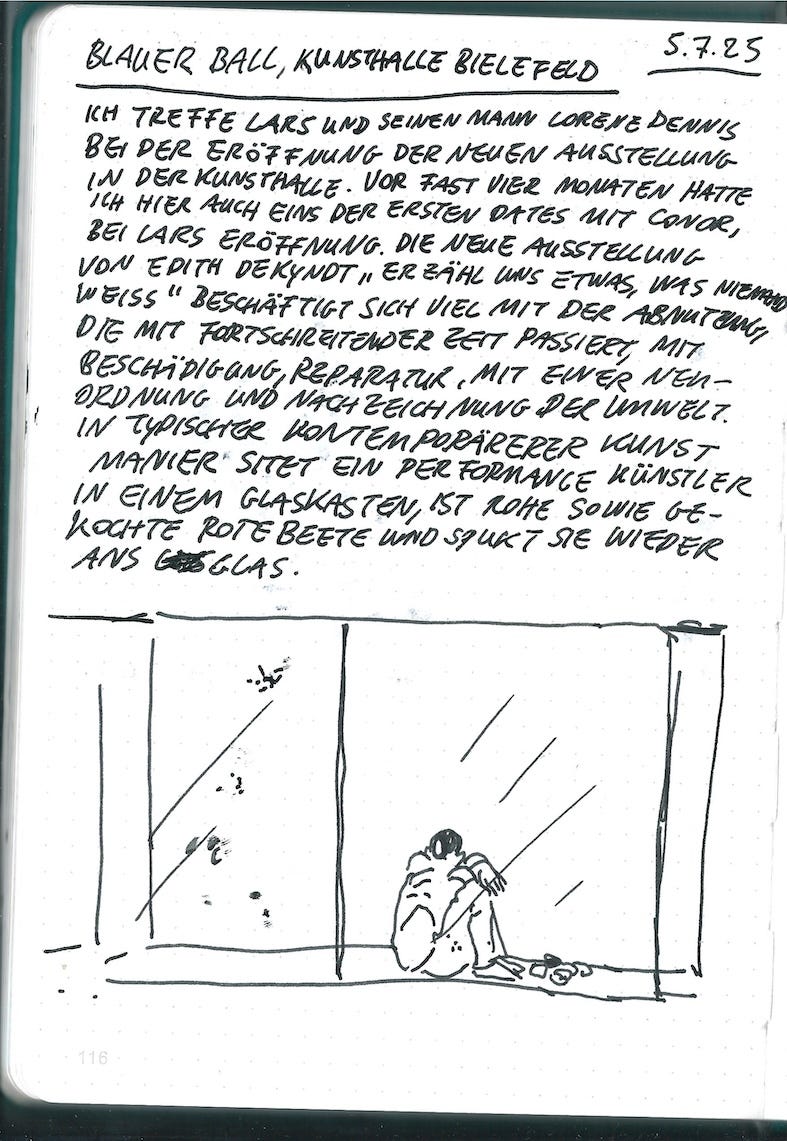 BLAUER BALL, KUNSTHALLE BIELEFELD
5.7.25
ICH TREFFE LARS UND SEINEN MANN LORENE DENNIS
BEI DER ERÖFFNUNG DER NEUEN AUSSTELLUNG
IN DER KUNSTHALLE. VOR FAST VIER MONATEN HATTE
ICH HIER AUCH EINS DER ERSTEN DATES MIT CONOR,
BEI LARS ERÖFFNUNG. DIE NEUE AUSSTELLUNG
VON EDITH DEKYNDT „ERZÄHL UNS ETWAS, WAS NIEMAND
WEISS" BESCHÄFTIGT SICH VIEL MIT DER ABNUTZUNG,
DIE MIT FORTSCHREITENDER ZEIT PASSIERT, MIT
BESCHÄDIGUNG, REPARATUR, MIT EINER NEU-
ORDNUNG UND NACHZEICHNUNG DER UMWELT.
IN TYPISCHER KONTEMPORÄRERER KUNST
MANIER SITET EIN PERFORMANCE KÜNSTLER
IN EINEM GLASKASTEN, IST ROHE SOWIE GE-
KOCHTE ROTE BEETE UND SPUKT SIE WIEDER
ANS GLAS.
116